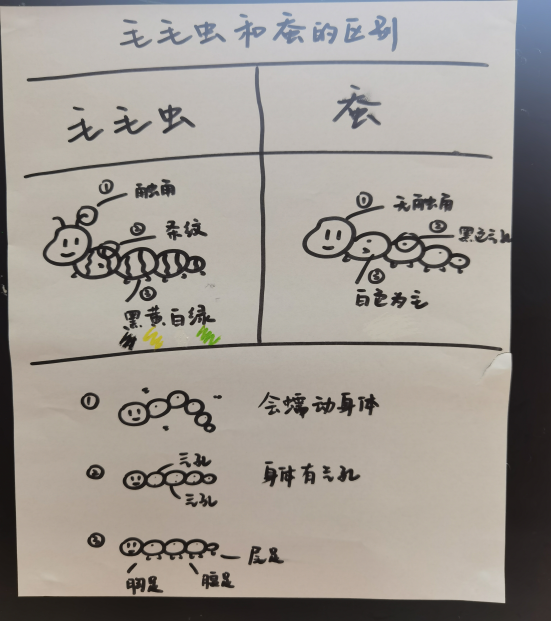 毛毛虫和蚕的区别
毛毛虫
蚕
① 触角
② 条纹
③
黑黄白绿
① 无触角
② 黑色气孔
③
白色为主
① 会蠕动身体
② 气孔
气孔
身体有气孔
③ 尾足
胸足 腹足